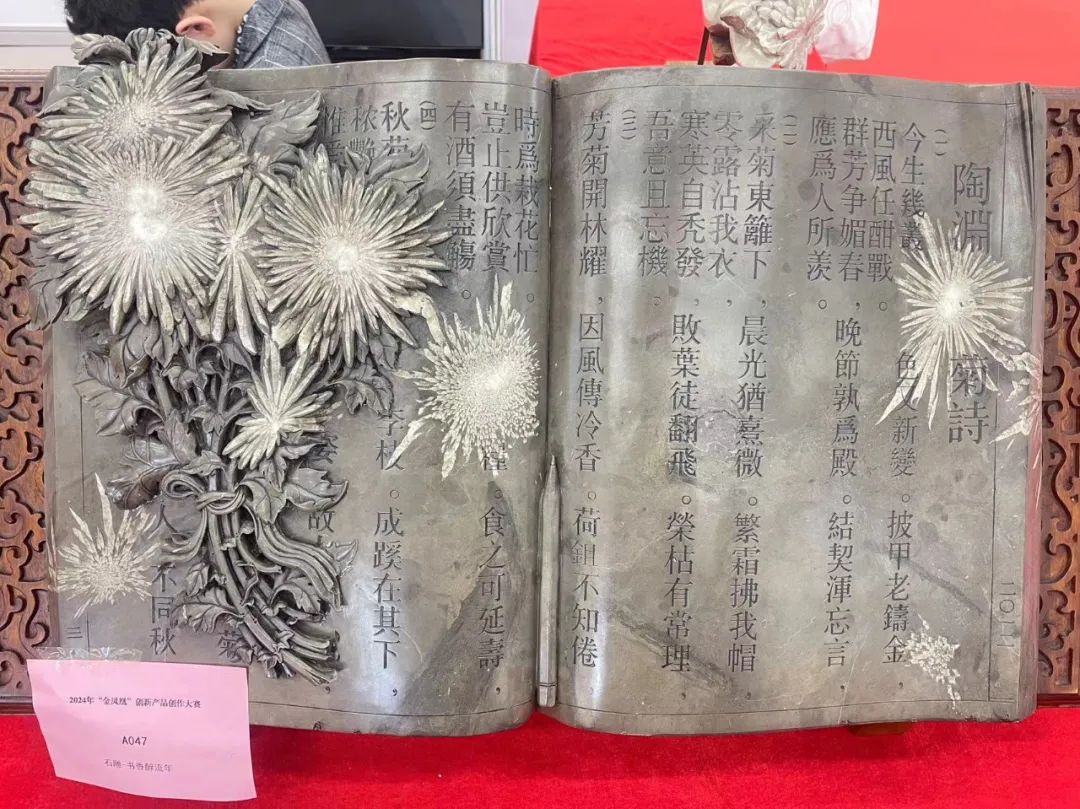 陶淵
菊詩
(一)
今生幾叢
色又新變。披甲老鑄金
西風任酣戰。
群芳争媚春,晚節孰爲殿。結契渾忘言
應爲人所羨。
(二)
采菊東籬下,晨光猶熹微。繁霜拂我帽,
零露沾我衣,
寒英自禿發,敗葉徒翻飛。榮枯有常理,
吾意且忘機。
(三)
芳菊開林耀,因風傳冷香。荷鉏不知倦,
時爲栽花忙。
豈止供欣賞
。食之可延壽,
有酒須盡觴。
(四)
秋
李枝。成蹊在其下,
穠
惟
姿
故
菊
不同秋
三
2024年“金凤凰”创新产品创作大赛
A047
石雕-书香醉流年